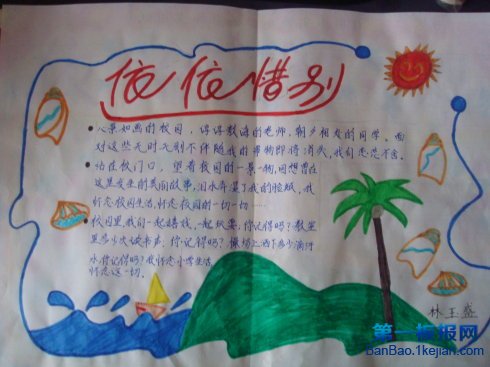 依依惜别
●风景如画的校园,谆谆教诲的老师,朝夕相处的同学。面
对这些无时无刻不伴随我的事物即将消失,我们恋恋不舍。
●站在校门口,望着校园的一景一物,回想曾在
这里发生的美丽故事,泪水弄湿了我的脸颊,我
怀恋校园生活,怀恋校园的一切一切……
●校园里,我们一起嬉戏,一起玩耍;你记得吗?教室
里多少次读书声;你记得吗?操场上洒下多少滴汗
水,你记得吗?我怀恋小学生活,
怀恋这一切。
林玉盛
第一板报网
BanBao.1kejian.com